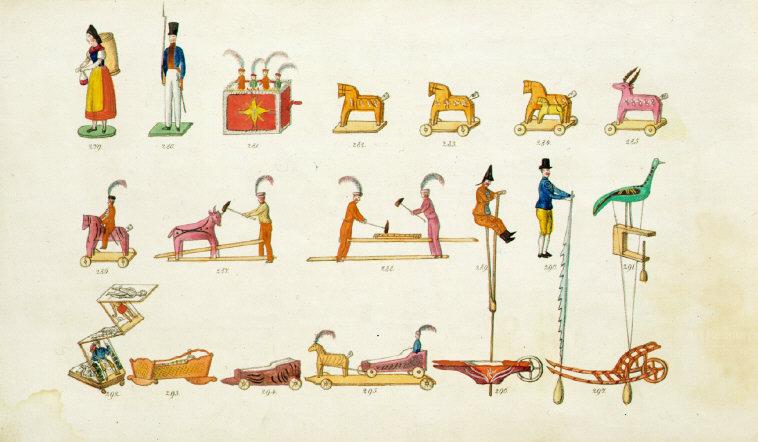 279.
280.
281.
282.
283.
284.
285.
286.
287.
288.
289.
290.
291.
292.
293.
294.
295.
296.
297.